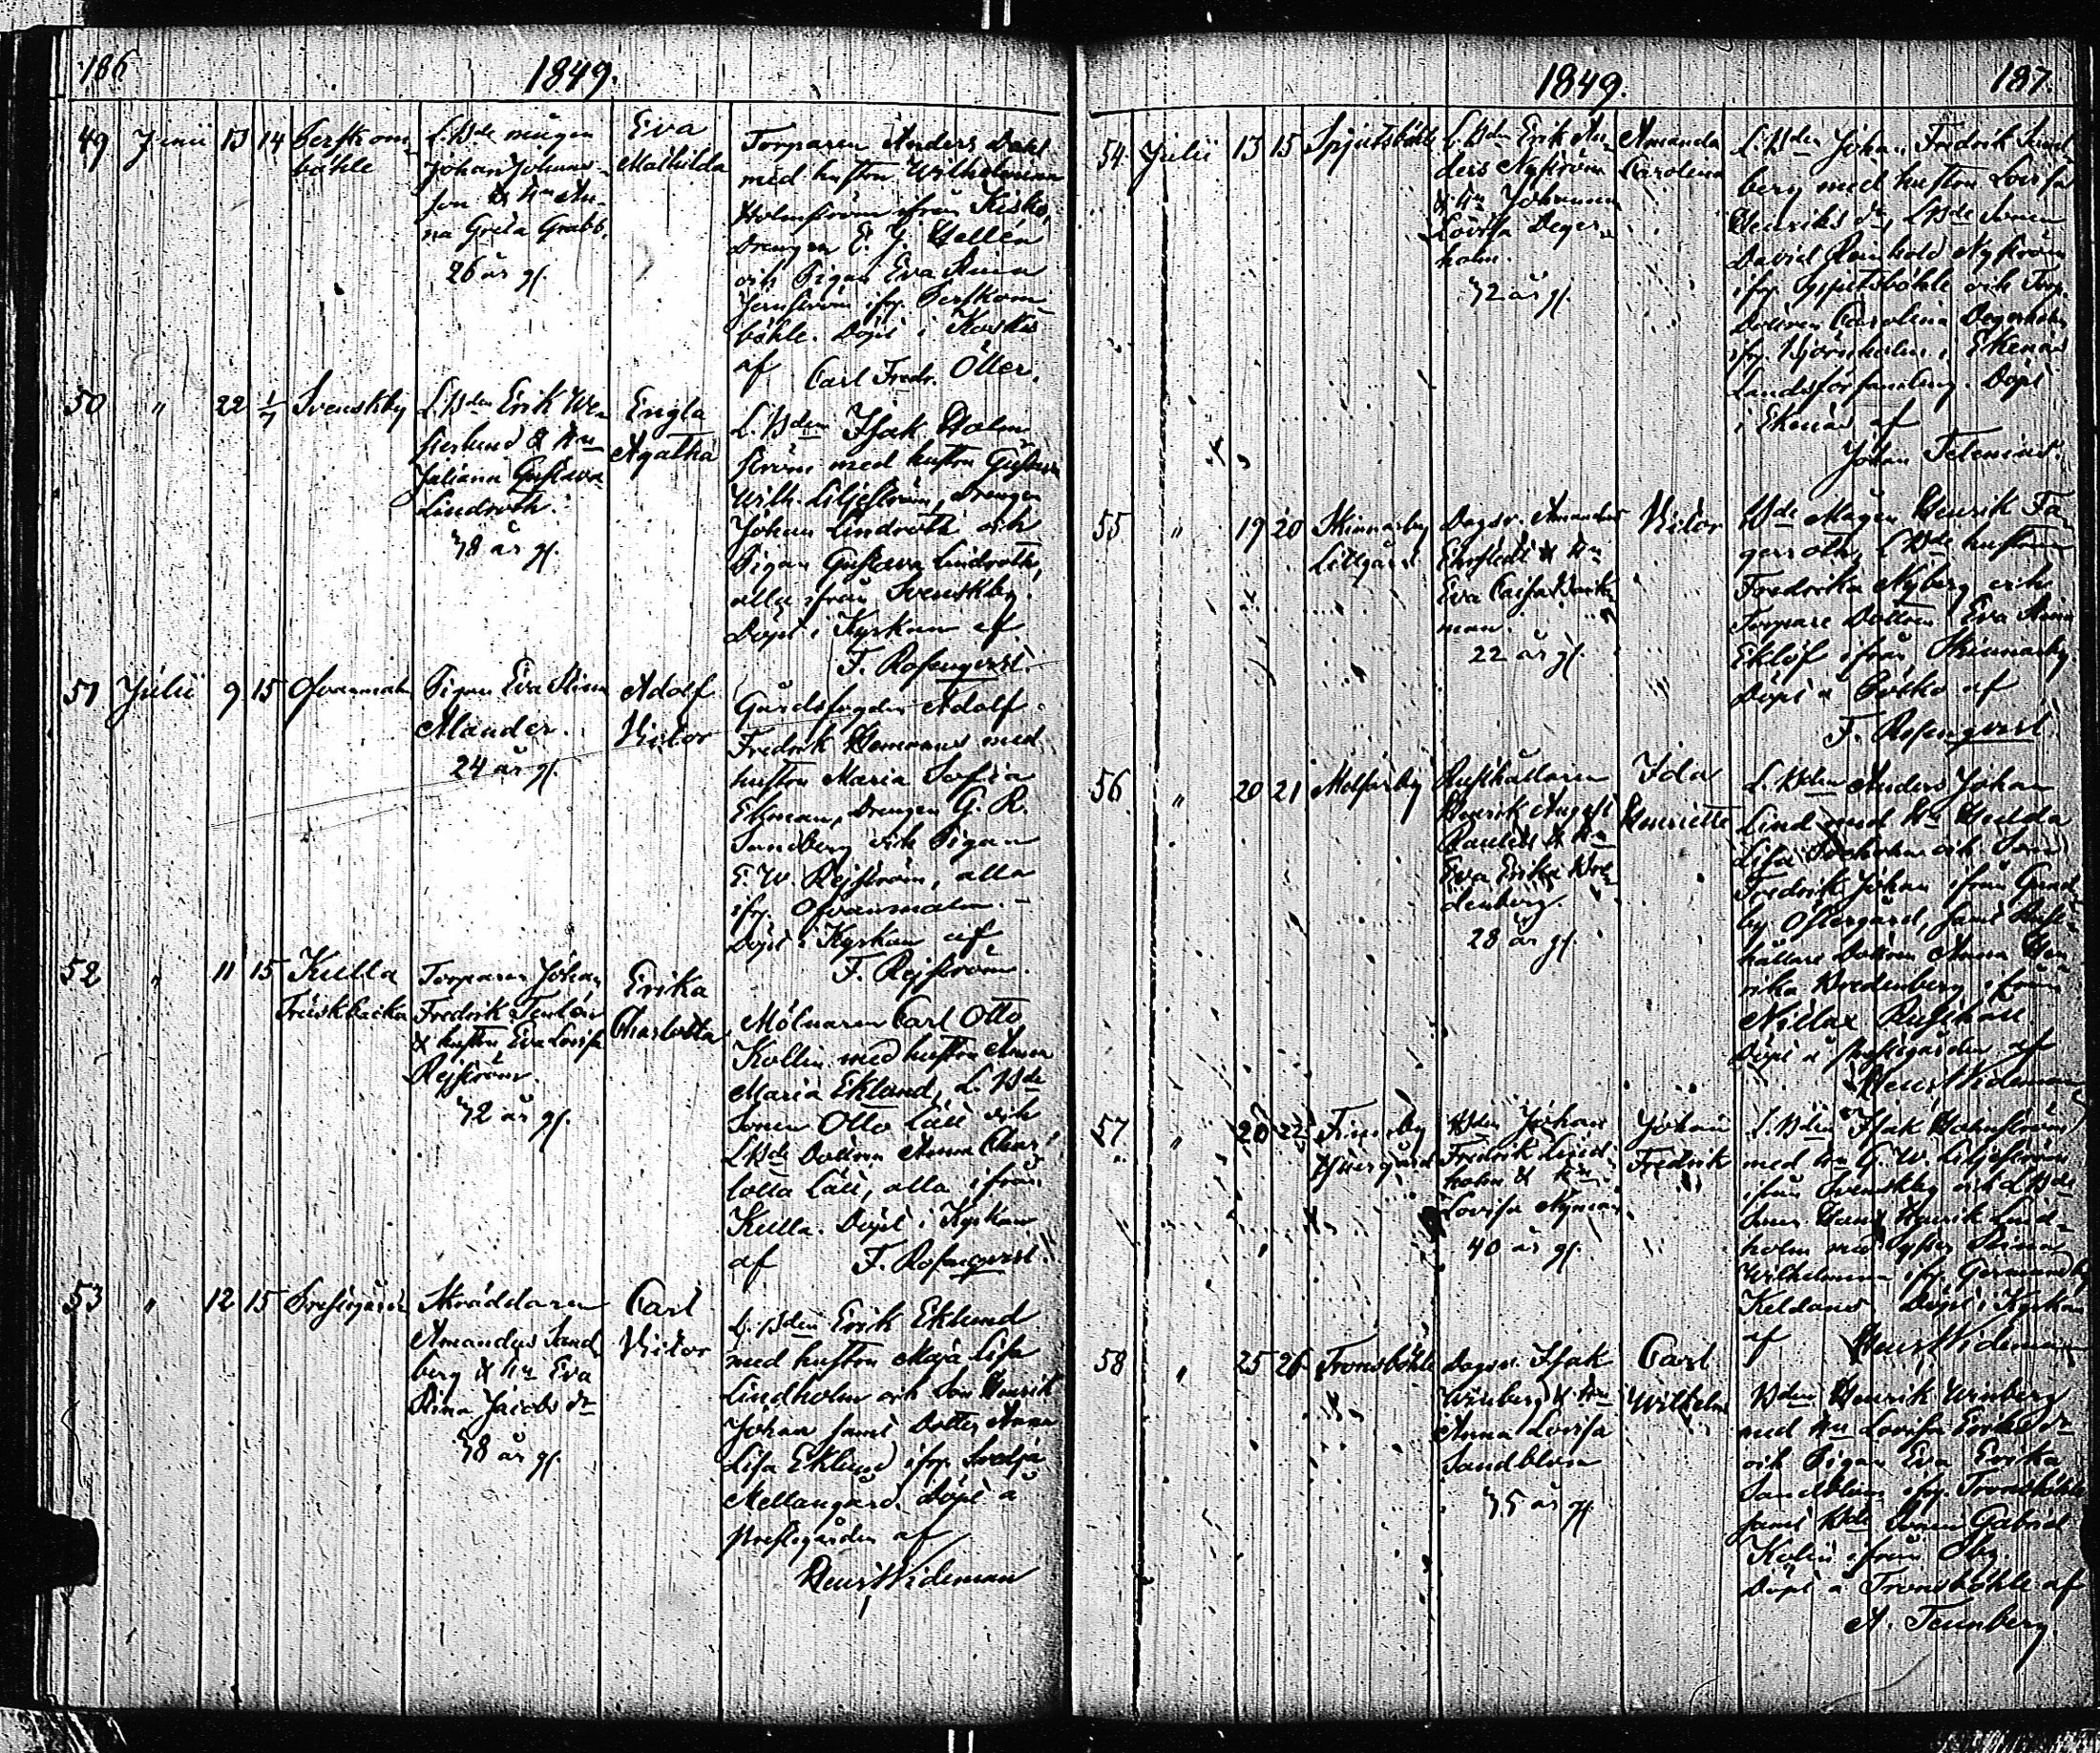 186
1849.
49 Junii 13 14 Persköm-
böhle
L. Bde mågen
Johan Johans-
son & Hu An-
na Greta Grabb.
26 år gl.
Eva
Mathilda
Torparen Anders Dahl
med hustru Wilhelmina
Holmström ifrån Kisko,
Drengen E. J. Hellén
och Pigan Eva Stina
Jernström ifr. Persköm-
böhle. Döpt i Koskis
af Carl Fredr. Öller.
50 " 22 1/7 Svenskby
L. Bden Erik We-
sterlund & Hu
Juliana Gustava
Lindroth.
38 år gl.
Engla
Agatha
L. Bden Isak Holm-
ström med hustru Gustava
Wilh. Liljeström, Drengen
Johan Lindroth och
Pigan Gustava Lindroth,
alla ifrån Svenskby.
Döpt i Kyrkan af
F. Rosenqvist.
51 Julii 9 15 Ofvanmalm
Pigan Eva Stina
Alander.
24 år gl.
Adolf
Victor
Gårdsfogden Adolf
Fredrik Hemman med
hustru Maria Sofia
Ekman, Drengen G. R.
Sandberg och Pigan
E. W. Rejström, alla
ifr. Ofvanmalm.
Döpt i Kyrkan af
F. Rejström.
52 " 11 15 Kulla
Träskbacka
Torparen Johan
Fredrik Tenlén
& hustru Eva Lovisa
Rejström.
32 år gl.
Erika
Charlotta
Mölnaren Carl Otto
Kollin med hustru Anna
Maria Eklund, L. Bde
Sonen Otto Lätt och
L Bde Dottren Anna Char-
lotta Lätt, alla ifrån
Kulla. Döpt i Kyrkan
af F. Rosenqvist.
53 " 12 15 Prestgården
Skräddaren
Amandus Sand-
berg & Hu Eva
Stina Jacobs dr
38 år gl.
Carl
Victor
L. Bden Erik Eklund
med hustru Maja Lisa
Lindholm och Son Henrik
Johan samt Dotter Anna
Lisa Eklund ifr. Svedja
Mellangård. Döpt å
Prestgården af
Henr Wideman
1849.
187.
54. Julii 13 15 Spjutsböhle
L. Bden Erik An-
ders Nyström
& Hu Johanna
Lovisa Deger-
holm.
32 år gl.
Amanda
Carolina
L. Bden Johan Fredrik Sund-
berg med hustru Lovisa
Henriks dr, L Bde Sonen
David Reinhold Nyström
ifr. Spjutsböhle och Torp.
Dottren Carolina Degerholm
ifr. Björnholm i Ekenäs
Landsförsamling. Döpt
i Ekenäs af
Johan Telenius.
55 " 19 20 Skinnarby
Lillgård
Dagsv. Amandus
Ehrstedt & Hu
Eva Caisa
man.
22 år gl.
Victor
Bde Mågen Henrik Fa-
gerroth, L Bde hustrun
Fredrika Nyberg och
Torpare Dottren Eva Stina
Eklöf ifrån Skinnarby.
Döpt å af
F. Rosenqvist.
56 " 20 21 Malfarby
Rusthållaren
Henrik August
& Hu
Eva Erika Bre-
denberg
28 år gl.
Ida
Henriette
L. Bden Anders Johan
Lind med Hu Hedda
Lisa och Son
Fredrik Johan ifrån
by Östergård, samt Rust-
hållare Dottren Anna Hen-
rika Bredenberg ifrån
Rusthåll.
Döpt å Prestgården af
Henr Wideman
57 " 20 22 Finnby
Ittergård
Bden Johan
Fredrik Lind-
holm & Hu
Lovisa Nyman
40 år gl.
Johan
Fredrik
L. Bden Isak Holmström
med Hu G. W. Liljeström
ifrån Svenskby och L Bde
Sonen Henrik Lind-
holm med syster Stina
Wilhelmina ifr. Germundby
Keldans. Döpt i Kyrkan
af Henr Wideman
58 " 25 26 Tronsböhle
Dagsv. Isak
Winberg & Hu
Anna Lovisa
Sandblom
35 år gl.
Carl
Wilhelm
Bden Henrik Winberg
med Hu Lovisa Eriks dr
och Pigan Eva Erika
Sandblom ifr. Tronsböhle
samt Bde Sonen Gabriel
Kolin ifrån Åby.
Döpt å Tronsböhle af
A. Tennberg.